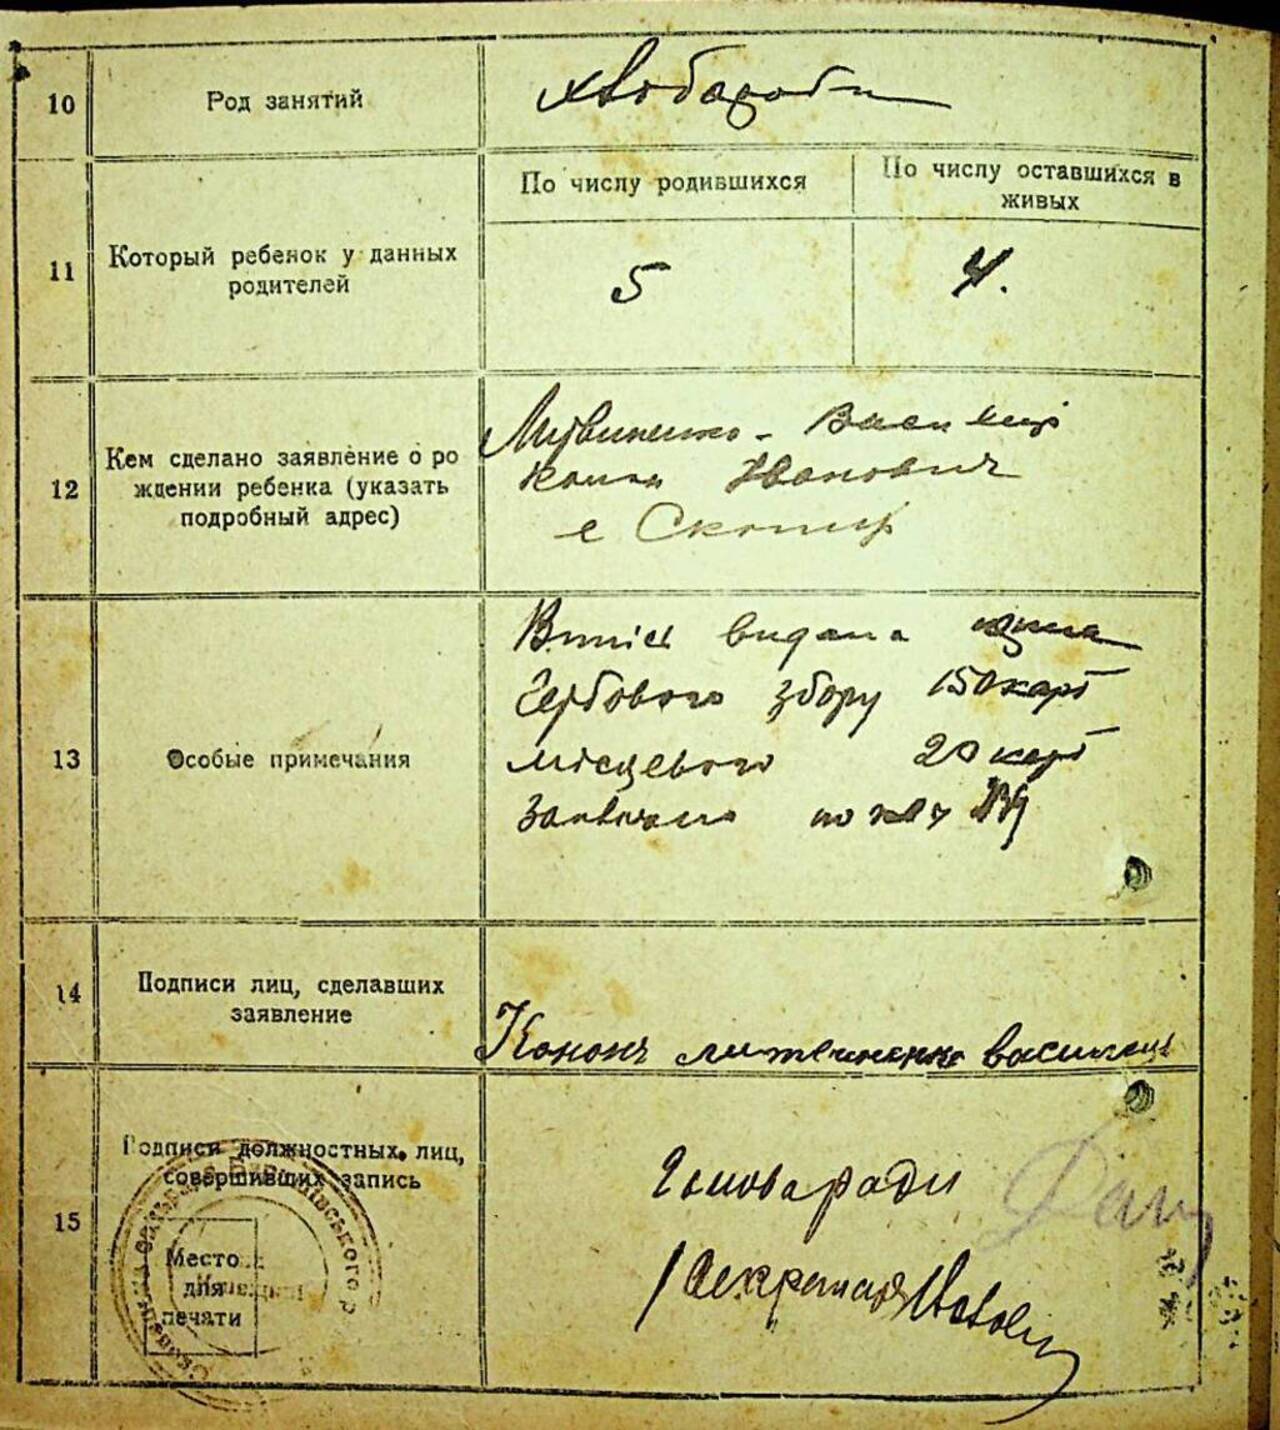 10
Род занятий
хлвобороби
11
Который ребенок у данных
родителей
По числу родившихся
По числу оставшихся в
живых
5
4.
12
Кем сделано заявление о ро
ждении ребенка (указать
подробный адрес)
Литвиненко - Василец
Иванович
с
13
Особые примечания
Випісь видана
Гербового збору 150 карб
місцевого 20 карб
14
Подписи лиц, сделавших
заявление
Кононъ литвененко василец
15
Подписи должностных лиц,
совершивших запись
Место
для
печати
Голова ради
Секретарь